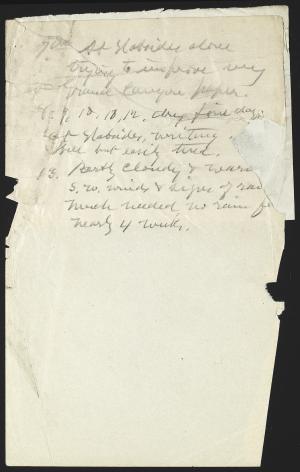 7th At Slabsides alone
trying to improve my
Grand Canyon paper.
8, 9, 10, 11, 12, dry fine days
at Slabsides, writing.
Well but easily tired.
13. Partly cloudy & warm
S.W. wind & signs of rain
Much needed no rain for
nearly 4 weeks.